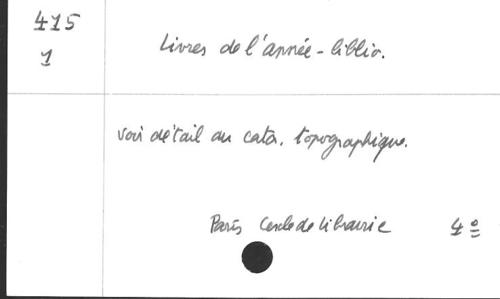 415
1
Livres de l'année - biblio.
voir détail au cata. topographique.
Paris Cercle de librairie 4º